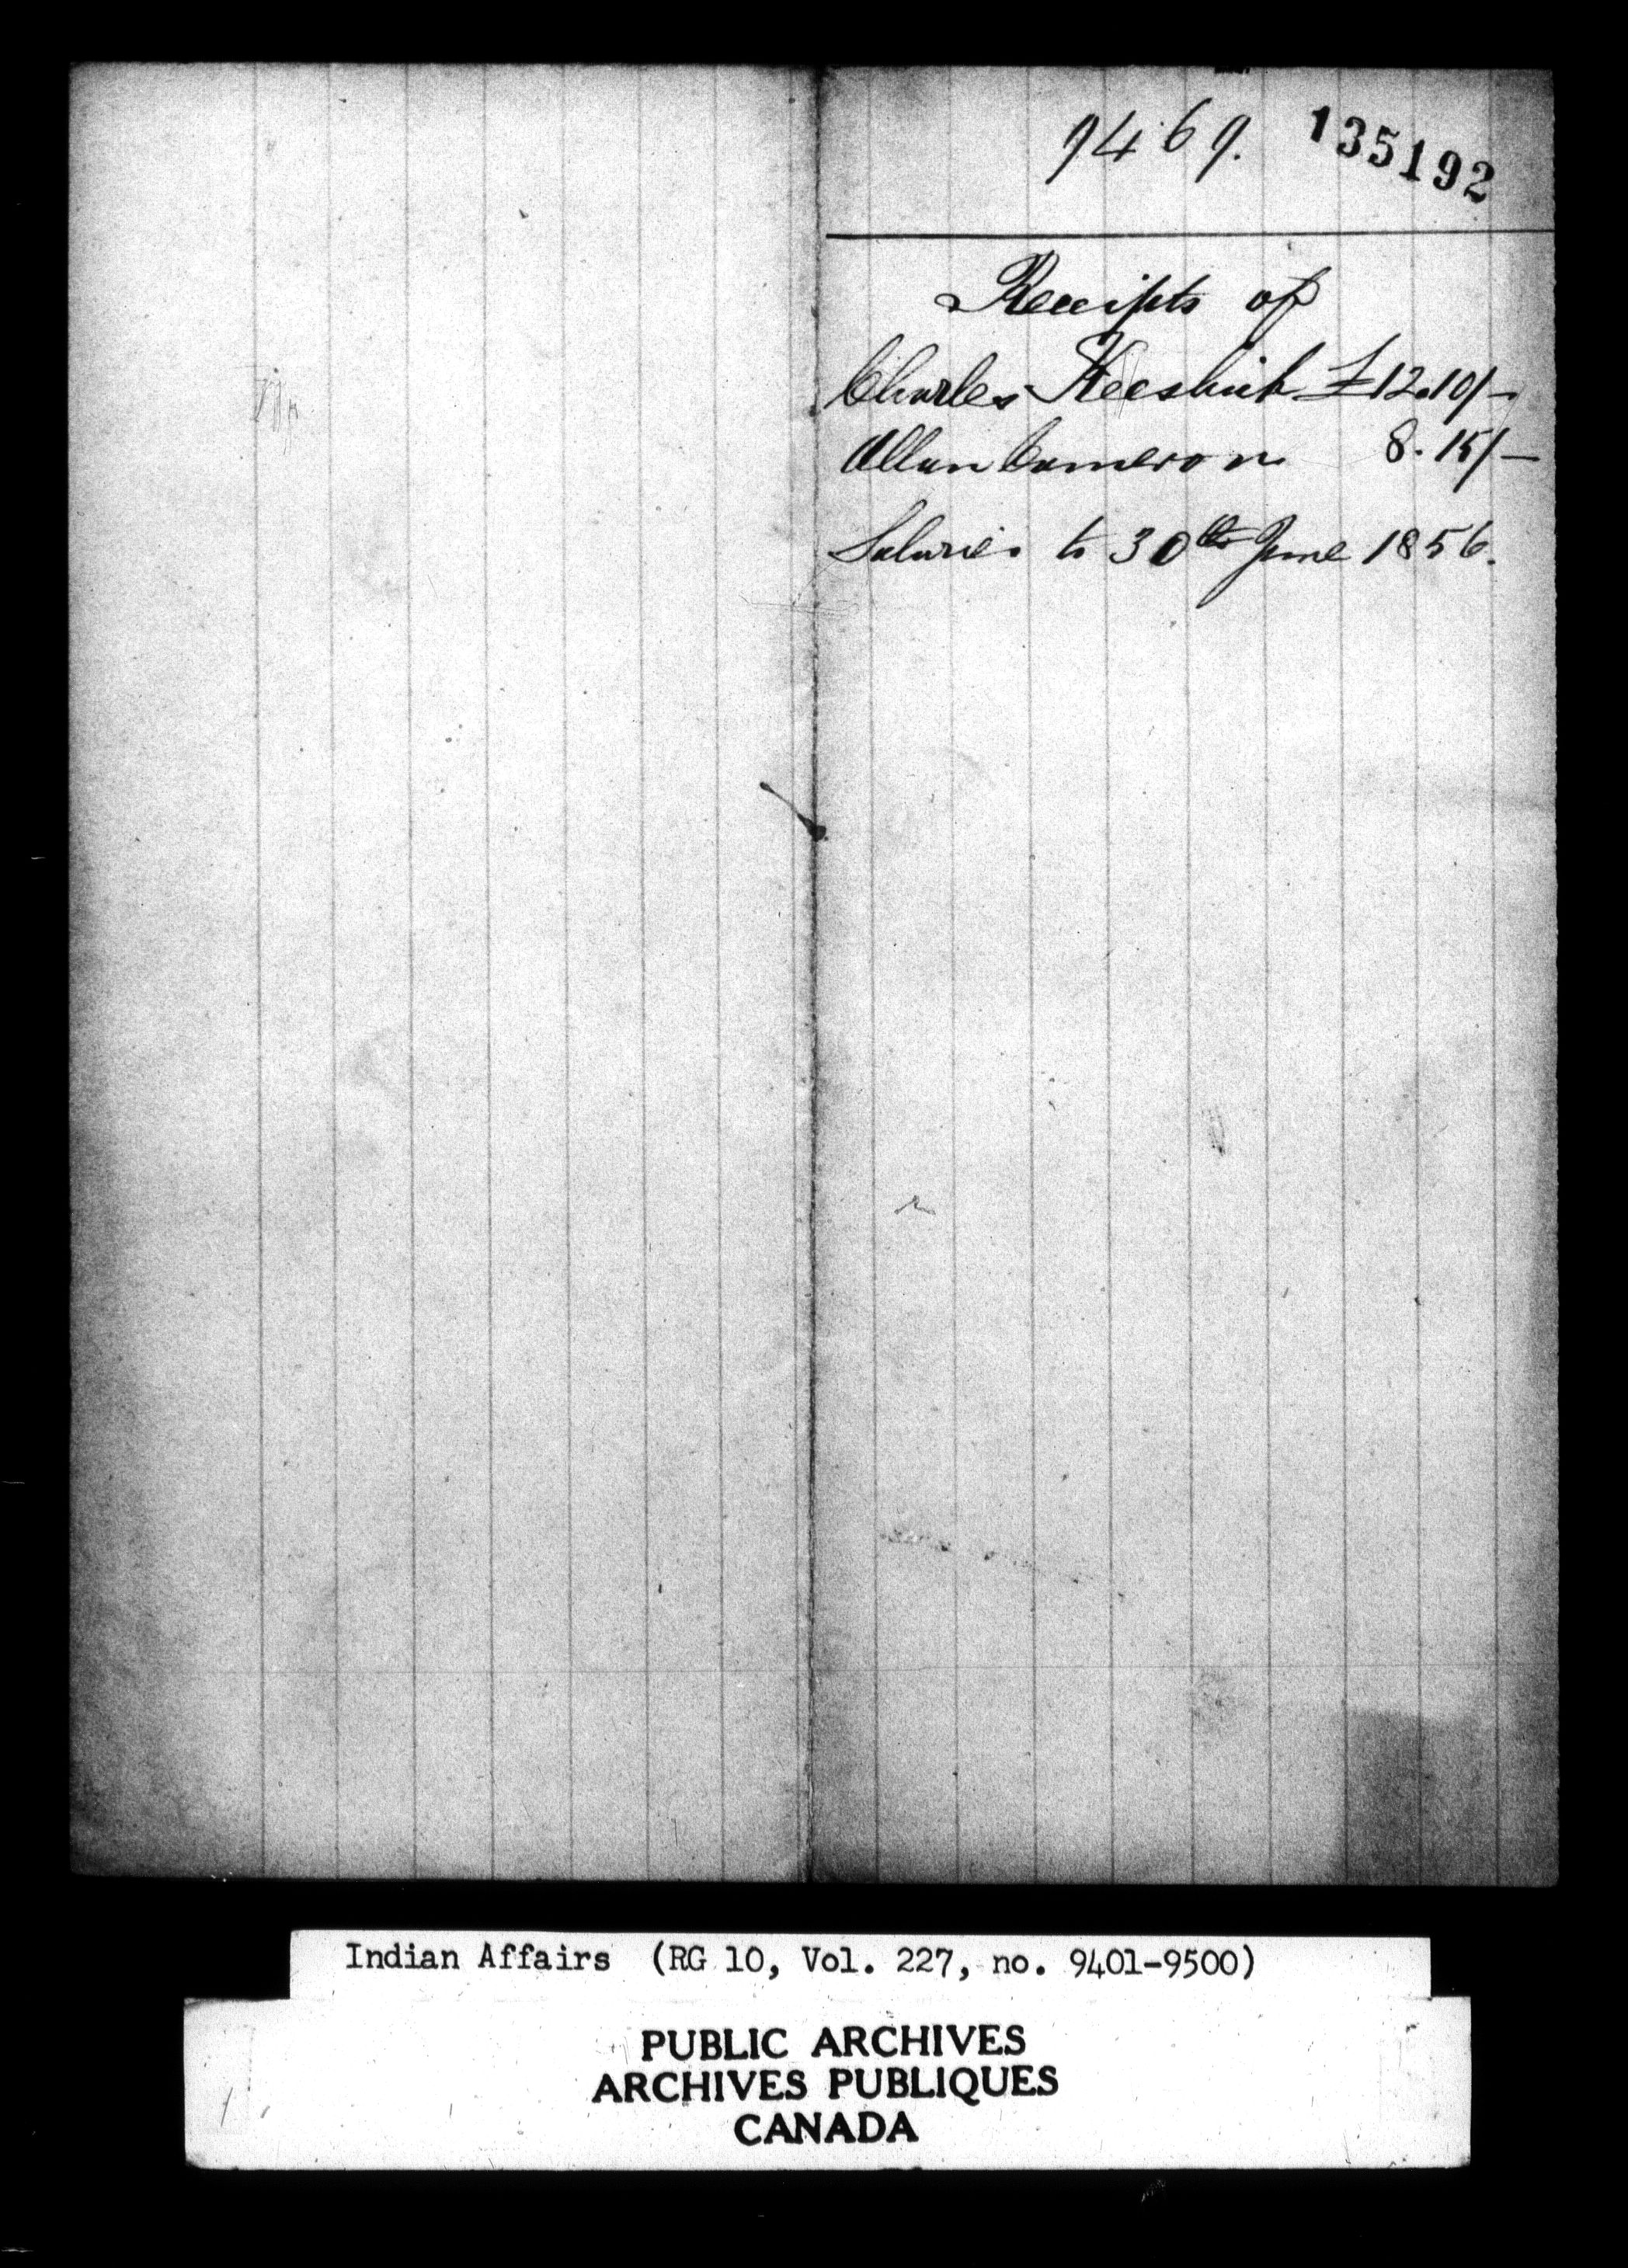 9469. 135192
Receipts of
Charles Keeshick £12.10/-
Allan Cameron 8.15/-
Salaries to 30th June 1856.
Indian Affairs (RG 10, Vol. 227, no. 9401-9500)
PUBLIC ARCHIVES
ARCHIVES PUBLIQUES
CANADA